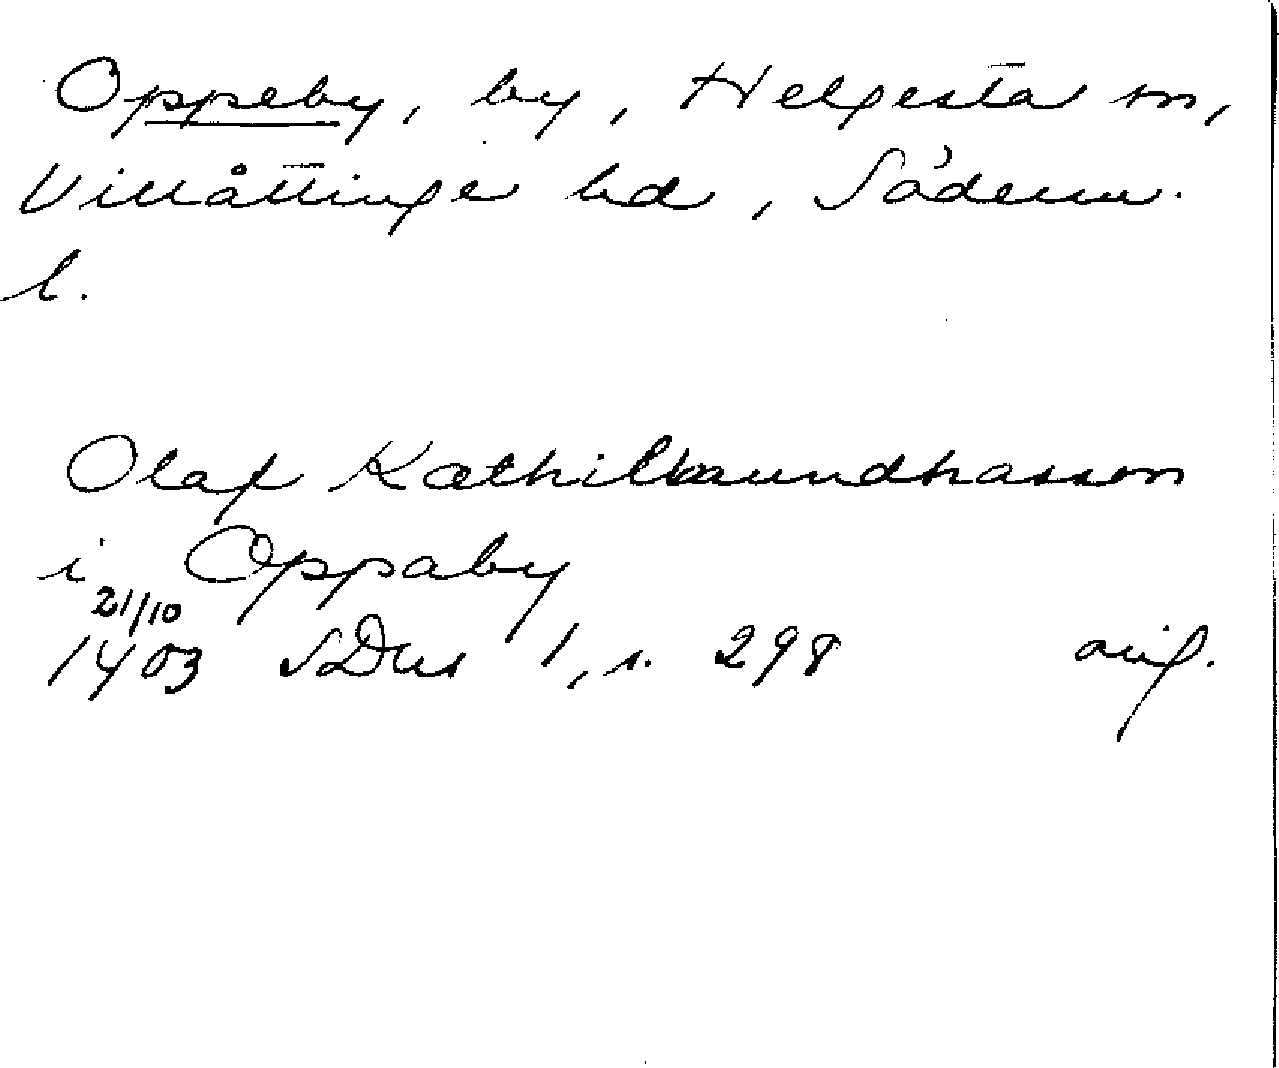 Oppeby, by, Helgesta sn,
Villåttinge hd, Söderm.
l.
Olaf Kæthilbaundhasson
i Oppaby
21/10
1403 SDns 1, s. 298 orig.